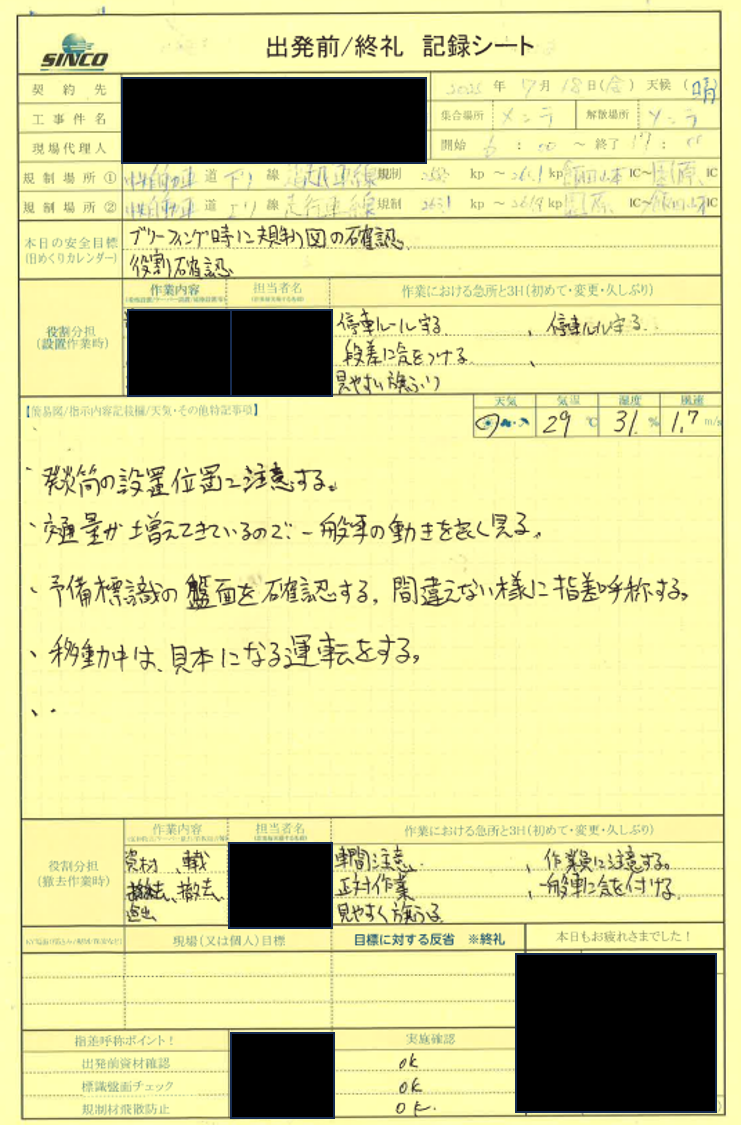 SINCO
出発前/終礼 記録シート
契約先
2025年 7月18日(金) 天候(晴)
工事件名
集合場所 メンテ 解散場所 メンテ
現場代理人
開始 6:00 ～ 終了 17:00
規制場所① 道 下り 線 追越車線 規制 kp ～ kp 飯田山本 IC～園原 IC
規制場所② 道 上り 線 走行車線 規制 kp ～ kp 園原 IC～飯田山本 IC
本日の安全目標
(日めくりカレンダー)
ブリーフィング時に規制図の確認
役割確認
作業内容 担当者名 作業における急所と3H(初めて・変更・久しぶり)
役割分担
(設置作業時)
停車ルール守る、停車ルール守る
段差に気をつける、
見やすい旗ふり
【簡易図/指示内容記載欄/天気・その他特記事項】
天気 気温 湿度 風速
29℃ 31.% 1.7m/s
、
、発炎筒の設置位置に注意する。
、交通量が増えてきているので、一般車の動きを良く見る。
、予備標識の盤面を確認する、間違えない様に指差呼称する。
、移動中は、見本になる運転をする。
、、
作業内容 担当者名 作業における急所と3H(初めて・変更・久しぶり)
役割分担
(撤去作業時)
資材、車載 車間注意、作業員に注意する。
撤去、撤去、 正対作業、一般車に気を付ける
退出 見やすく旗ふる
現場(又は個人)目標 目標に対する反省 ※終礼 本日もお疲れさまでした!
指差呼称ポイント! 実施確認
出発前資材確認 OK
標識盤面チェック OK
規制材飛散防止 OK